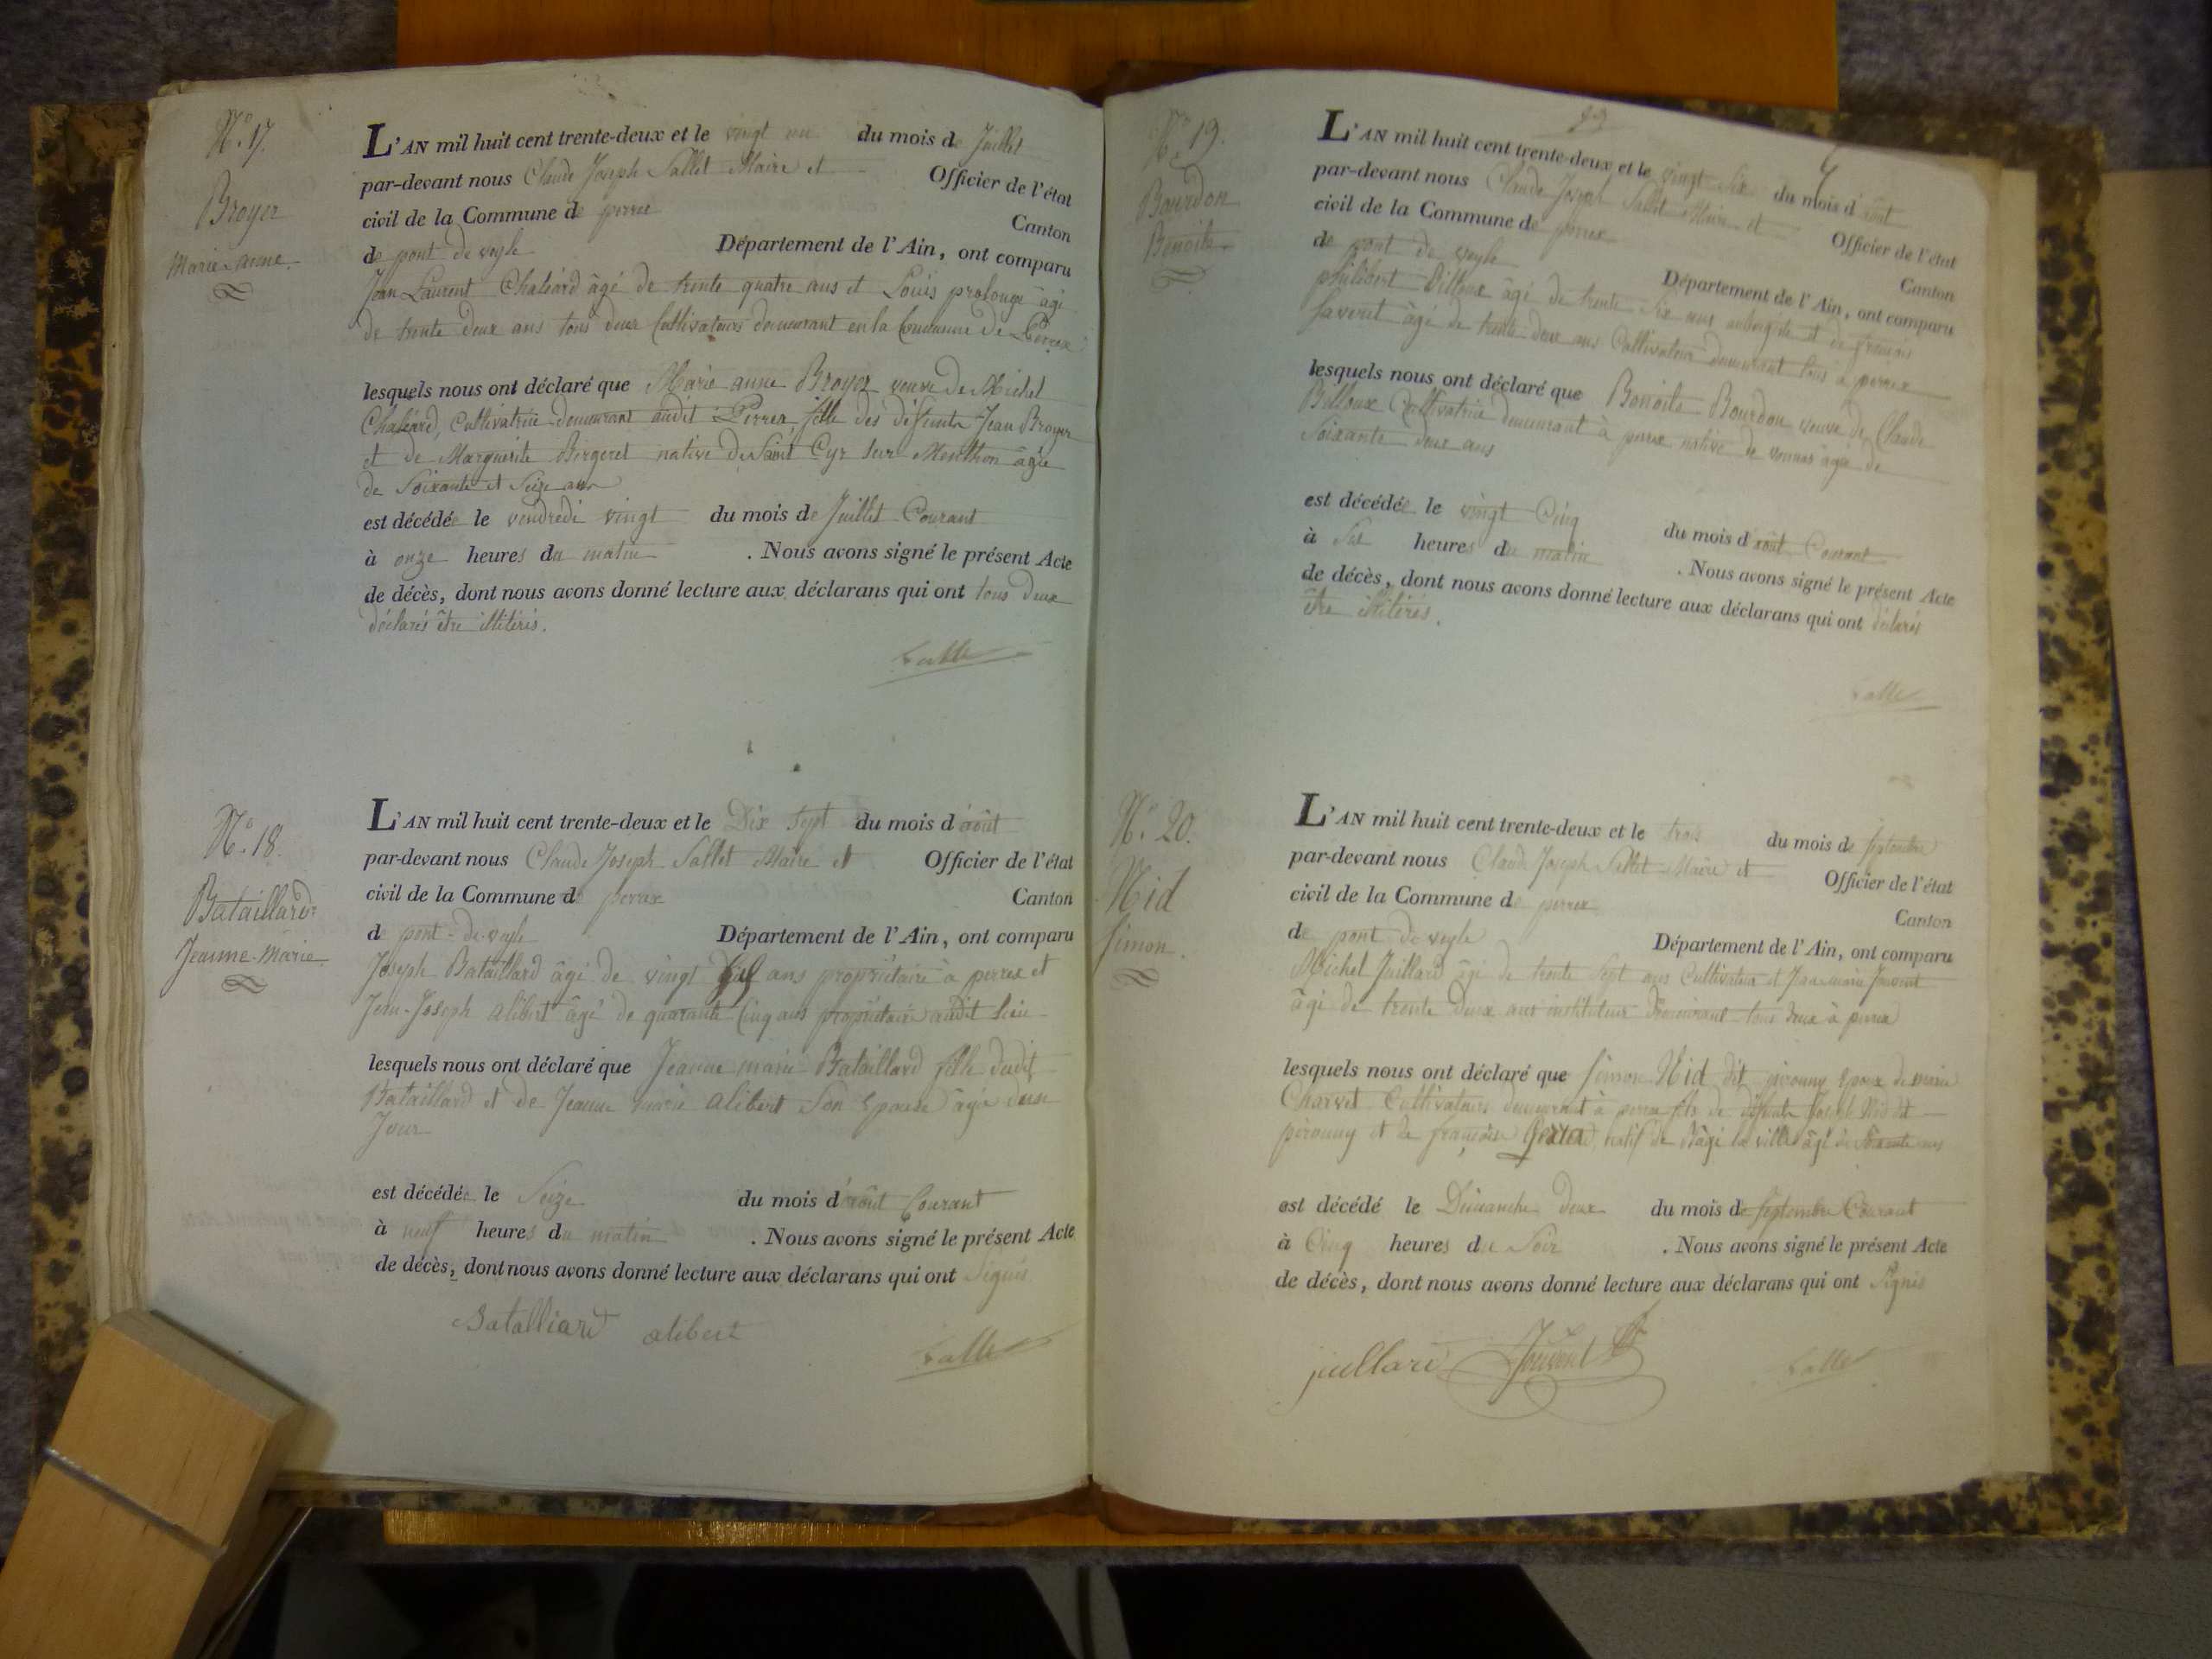 N.° 17.
Broyer
Marie-anne.
L'AN mil huit cent trente-deux et le vingt un du mois de Juillet
par-devant nous Claude Joseph Sallet Maire et Officier de l'état
civil de la Commune de perrex Canton
de pont de veyle Département de l'Ain, ont comparu
Jean Laurent Chaléard âgé de trente quatre ans et Louis prolonge âgé
de trente deux ans tous deux Cultivateurs demeurant en la Commune de Perrex
lesquels nous ont déclaré que Marie anne Broyer veuve de Michel
Chaléard, Cultivatrice demeurant audit Perrex fille des défunts Jean Broyer
et de Marguerite Bergeret native de Saint Cyr sur Menthon âgée
de Soixante et Seize ans
est décédée le vendredi vingt du mois de Juillet Courant
à onze heures du matin . Nous avons signé le présent Acte
de décès, dont nous avons donné lecture aux déclarans qui ont tous deux
déclarés être illitérés.
N.° 18.
Bataillard
Jeanne-Marie
L'AN mil huit cent trente-deux et le Dix Sept du mois d'août
par-devant nous Claude Joseph Sallet Maire et Officier de l'état
civil de la Commune de perrex Canton
de pont-de-veyle Département de l'Ain, ont comparu
Joseph Bataillard âgé de vingt ans propriétaire à perrex et
Jean-Joseph alibert âgé de quarante Cinq ans propriétaire audit lieu
lesquels nous ont déclaré que Jeanne marie Bataillard fille dudit
Bataillard et de Jeanne marie alibert Son Epouse âgée d'un
Jour
est décédée le Seize du mois d'août Courant
à neuf heures du matin . Nous avons signé le présent Acte
de décès, dont nous avons donné lecture aux déclarans qui ont Signés
Batalliard alibert
N.° 19.
Bourdon
Benoite
L'AN mil huit cent trente-deux et le vingt Six du mois d'août
par-devant nous Claude Joseph Sallet Maire et Officier de l'état
civil de la Commune de perrex Canton
de pont de veyle Département de l'Ain, ont comparu
philibert Billoux âgé de trente Six ans aubergiste et de françois
Saveret âgé de trente-deux ans Cultivateur demeurant tous à perrex
lesquels nous ont déclaré que Benoite Bourdon veuve de Claude
Billoux Cultivatrice demeurant à perrex native de vonnas âgée de
Soixante deux ans
est décédée le vingt Cinq du mois d'août Courant
à Six heures du matin . Nous avons signé le présent Acte
de décès, dont nous avons donné lecture aux déclarans qui ont déclarés
être illitérés.
N.° 20.
Nid
Simon.
L'AN mil huit cent trente-deux et le trois du mois de Septembre
par-devant nous Claude Joseph Sallet Maire et Officier de l'état
civil de la Commune de perrex Canton
de pont de veyle Département de l'Ain, ont comparu
Michel Juillard âgé de trente Sept ans Cultivateur et Jean marie Jouvent
âgé de trente Deux ans instituteur Demeurant tous deux à perrex
lesquels nous ont déclaré que Simon Nid dit pirouny Epoux de marie
Charvet Cultivateur demeurant à perrex fils de défunts Joseph Nid dit
pirouny et de françoise natif de Bâgé la ville âgé de Soixante ans
est décédé le Dimanche deux du mois de Septembre Courant
à Cinq heures du Soir . Nous avons signé le présent Acte
de décès, dont nous avons donné lecture aux déclarans qui ont Signés
juillard Jouvent